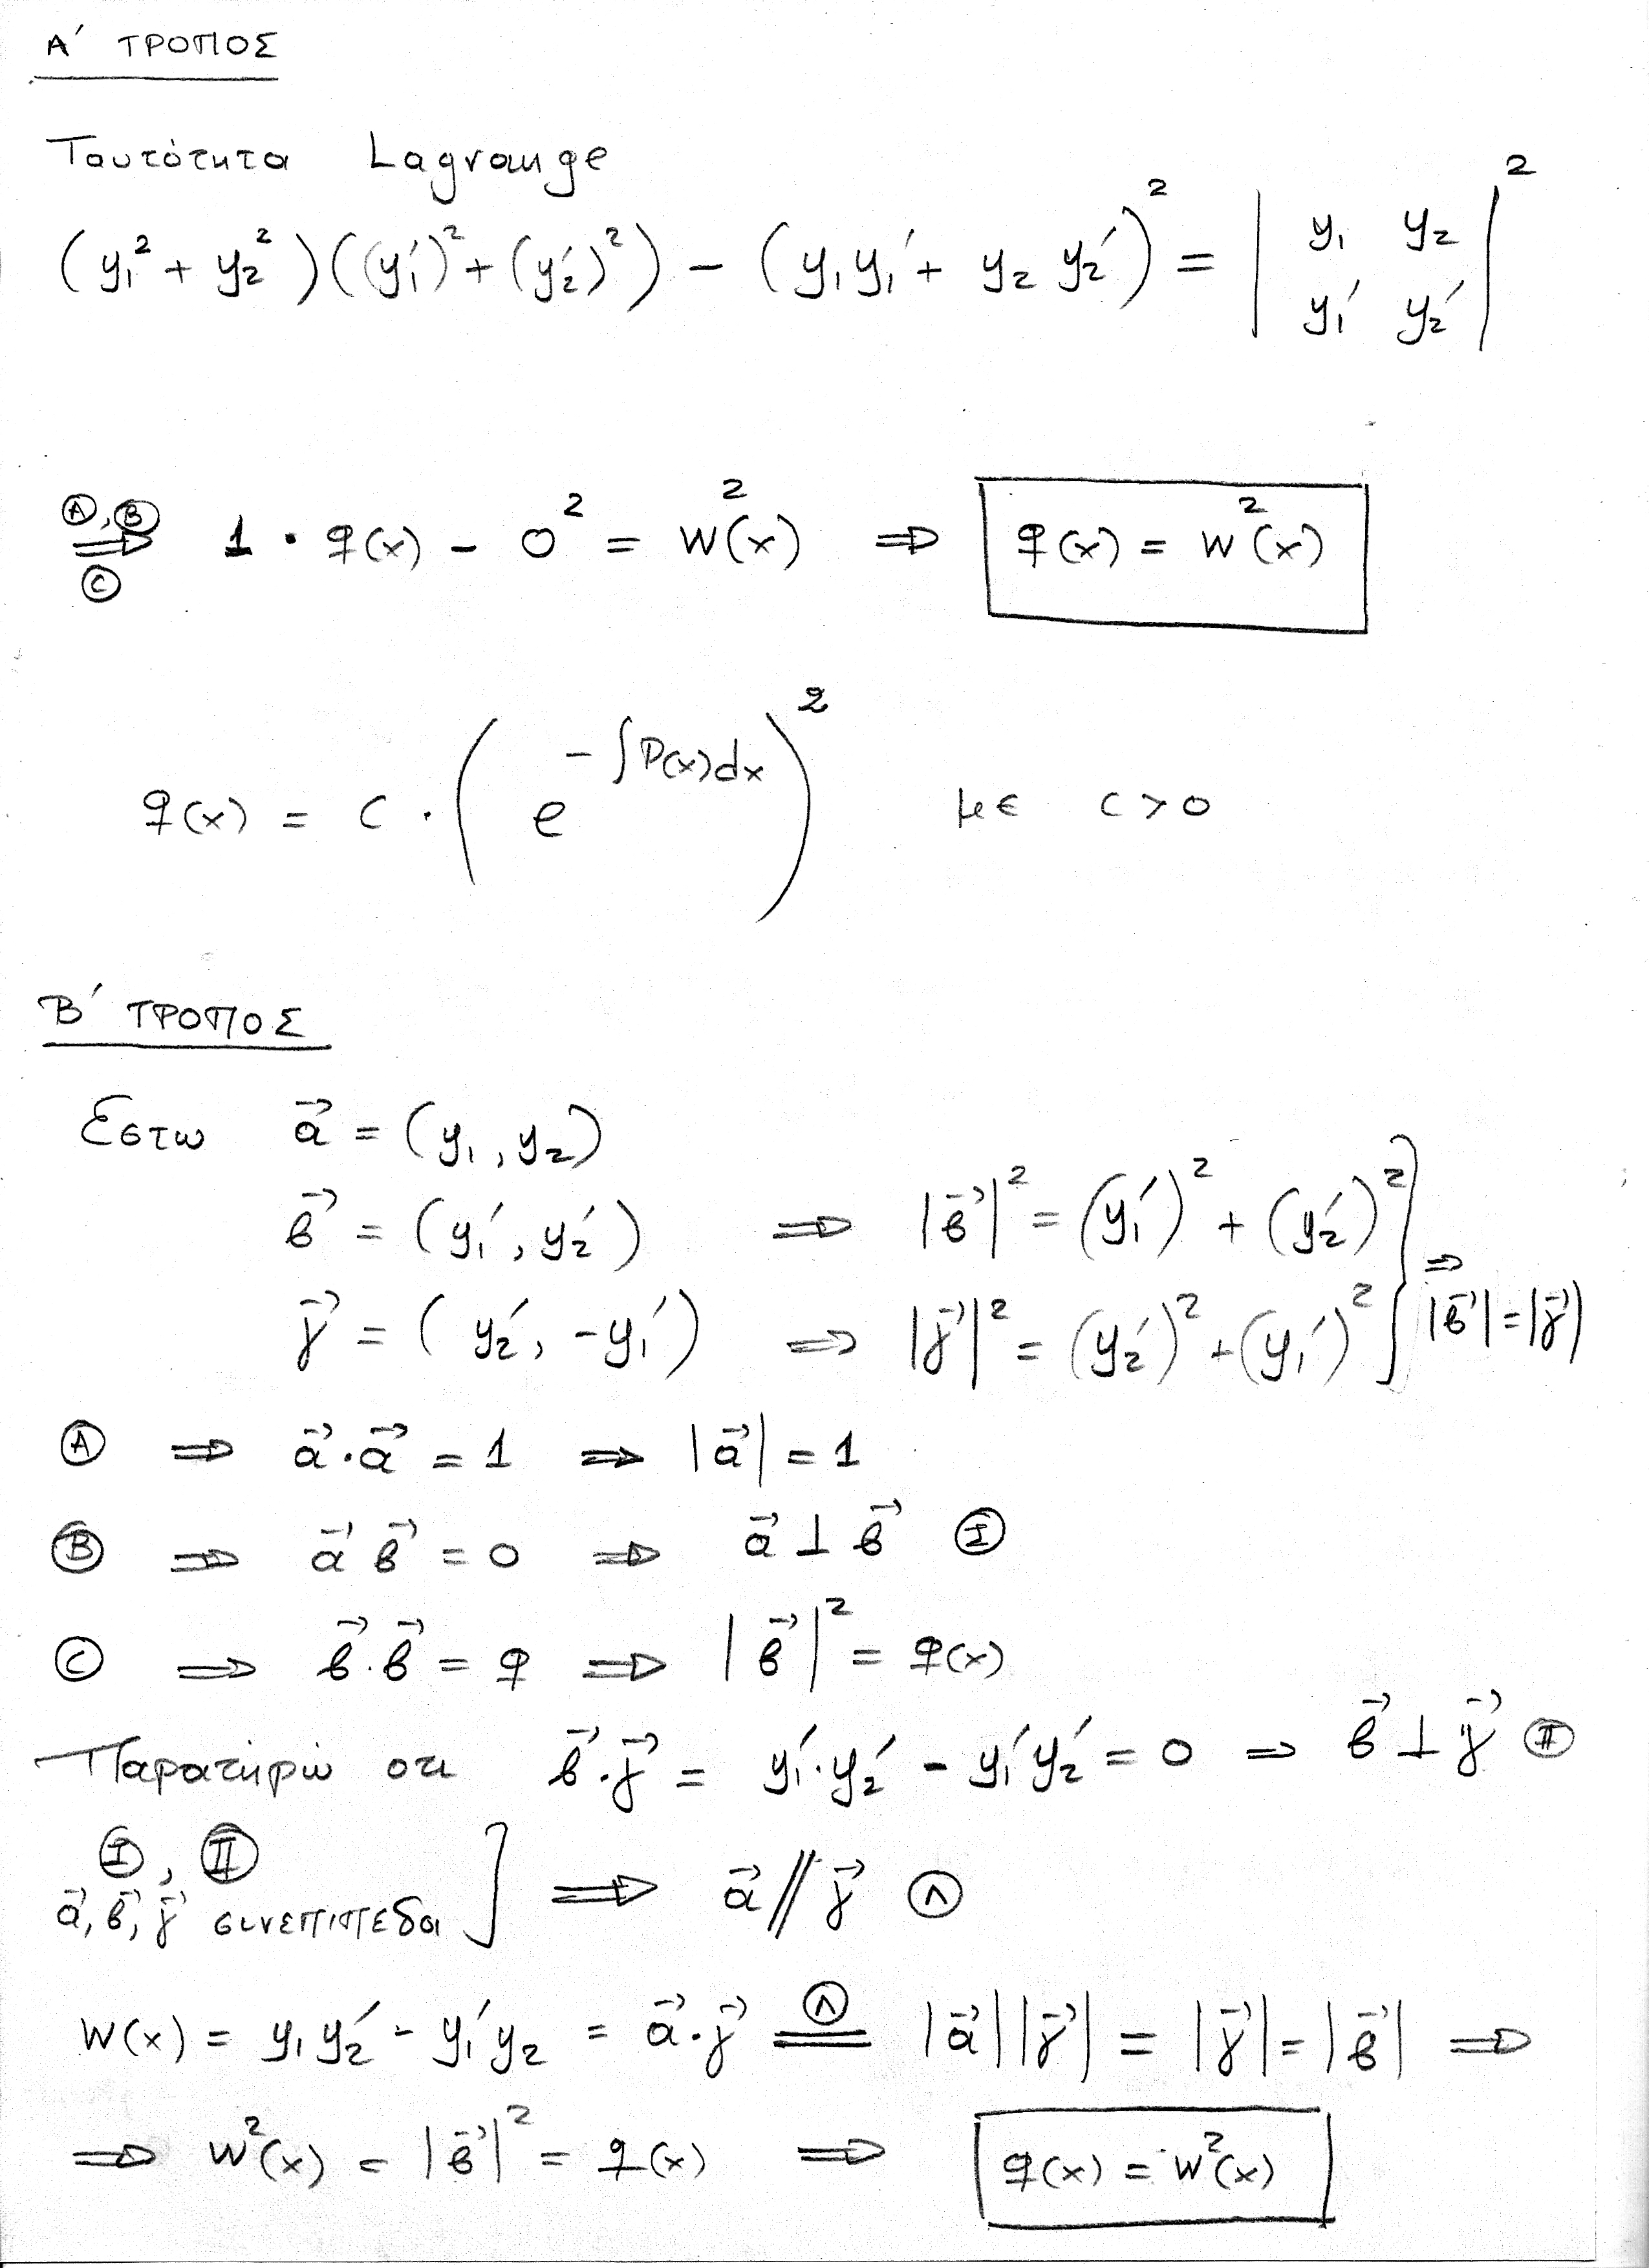 Α΄ ΤΡΟΠΟΣ
Ταυτότητα Lagrange
(y₁² + y₂²)((y₁′)² + (y₂′)²) − (y₁y₁′ + y₂ y₂′)² = | y₁ y₂ ; y₁′ y₂′ |²
Ⓐ,Ⓑ ⟹ Ⓒ 1 · q(x) − 0² = w²(x) ⟹ q(x) = w²(x)
q(x) = c · ( e^{−∫P(x)dx} )² με c>0
Β΄ ΤΡΟΠΟΣ
Εστω a⃗ = (y₁, y₂)
β⃗ = (y₁′, y₂′) ⟹ |β⃗|² = (y₁′)² + (y₂′)²
γ⃗ = (y₂′, −y₁′) ⟹ |γ⃗|² = (y₂′)² + (y₁′)² } ⟹ |β⃗| = |γ⃗|
Ⓐ ⟹ a⃗·a⃗ = 1 ⟹ |a⃗| = 1
Ⓑ ⟹ a⃗ β⃗ = 0 ⟹ a⃗ ⊥ β⃗ Ⓘ
Ⓒ ⟹ β⃗·β⃗ = q ⟹ |β⃗|² = q(x)
Παρατηρώ οτι β⃗·γ⃗ = y₁′·y₂′ − y₁′y₂′ = 0 ⟹ β⃗ ⊥ γ⃗ (II)
Ⓘ, (II)
a⃗, β⃗, γ⃗ συνεπιπεδα ] ⟹ a⃗ // γ⃗ (Λ)
w(x) = y₁y₂′ − y₁′y₂ = a⃗·γ⃗ =(Λ)= |a⃗||γ⃗| = |γ⃗| = |β⃗| ⟹
⟹ w²(x) = |β⃗|² = q(x) ⟹ q(x) = w²(x)